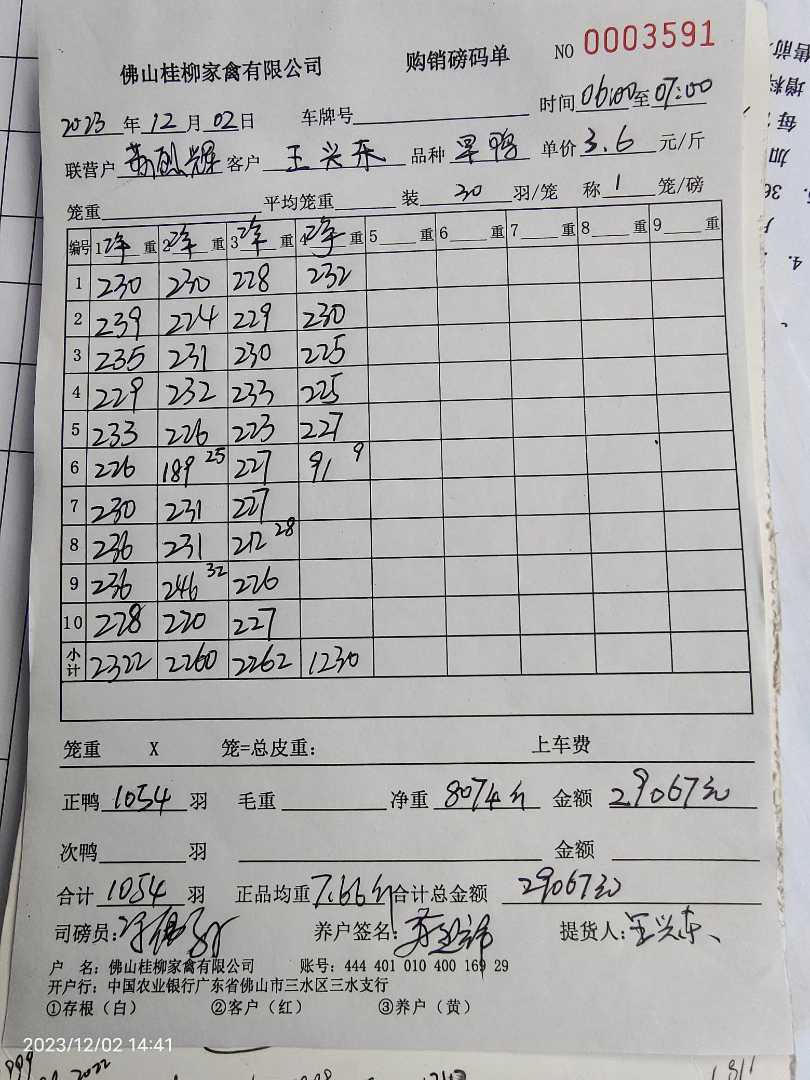 佛山桂柳家禽有限公司 购销磅码单 NO 0003591
2023年12月02日 车牌号 时间06:00至07:00
联营户 客户 王兴东 品种 单价3.6元/斤
笼重 平均笼重 装30羽/笼 称1笼/磅
编号 1净重 2净重 3净重 4净重 5重 6重 7重 8重 9重
1 230 230 228 232
2 239 224 229 230
3 235 231 230 225
4 229 232 233 225
5 233 226 223 227
6 226 189 25 227 91 9
7 230 231 227
8 236 231 212 28
9 236 246 32 226
10 228 220 227
小计 2322 2260 2262 1230
笼重 X 笼=总皮重: 上车费
正鸭1054羽 毛重 净重8074斤 金额29067元
次鸭 羽 金额
合计1054羽 正品均重7.66斤 合计总金额29067元
司磅员: 养户签名: 提货人:王兴东
户 名: 佛山桂柳家禽有限公司 账号: 444 401 010 400 169 29
开户行: 中国农业银行广东省佛山市三水区三水支行
①存根(白) ②客户(红) ③养户(黄)
2023/12/02 14:41